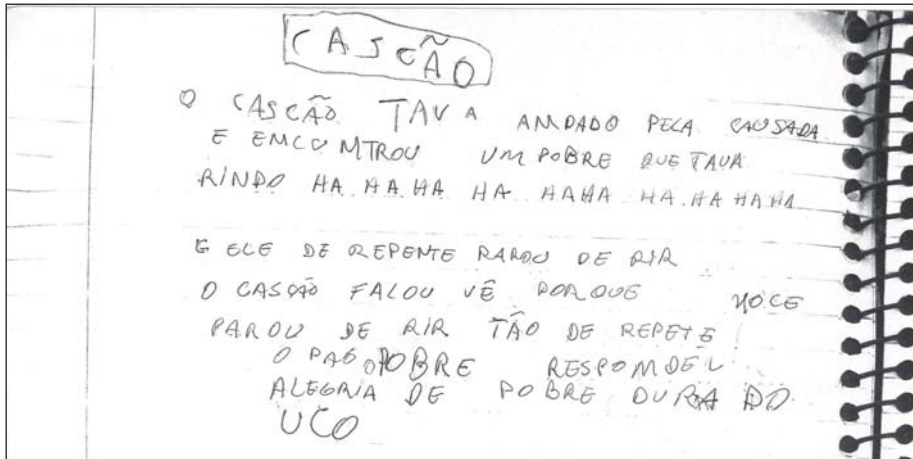 CASCÃO
O CASCÃO TAVA AMDADO PELA CAUSADA
E EMCOMTROU UM POBRE QUE TAVA
RINDO HA HA HA HA HAHA HA HA HA HA
E ELE DE REPENTE PAROU DE RIR
O CASCÃO FALOU VÊ PORQUE VOCE
PAROU DE RIR TÃO DE REPETE
O POBRE RESPOMDEU
ALEGRIA DE POBRE DURA PO
UCO